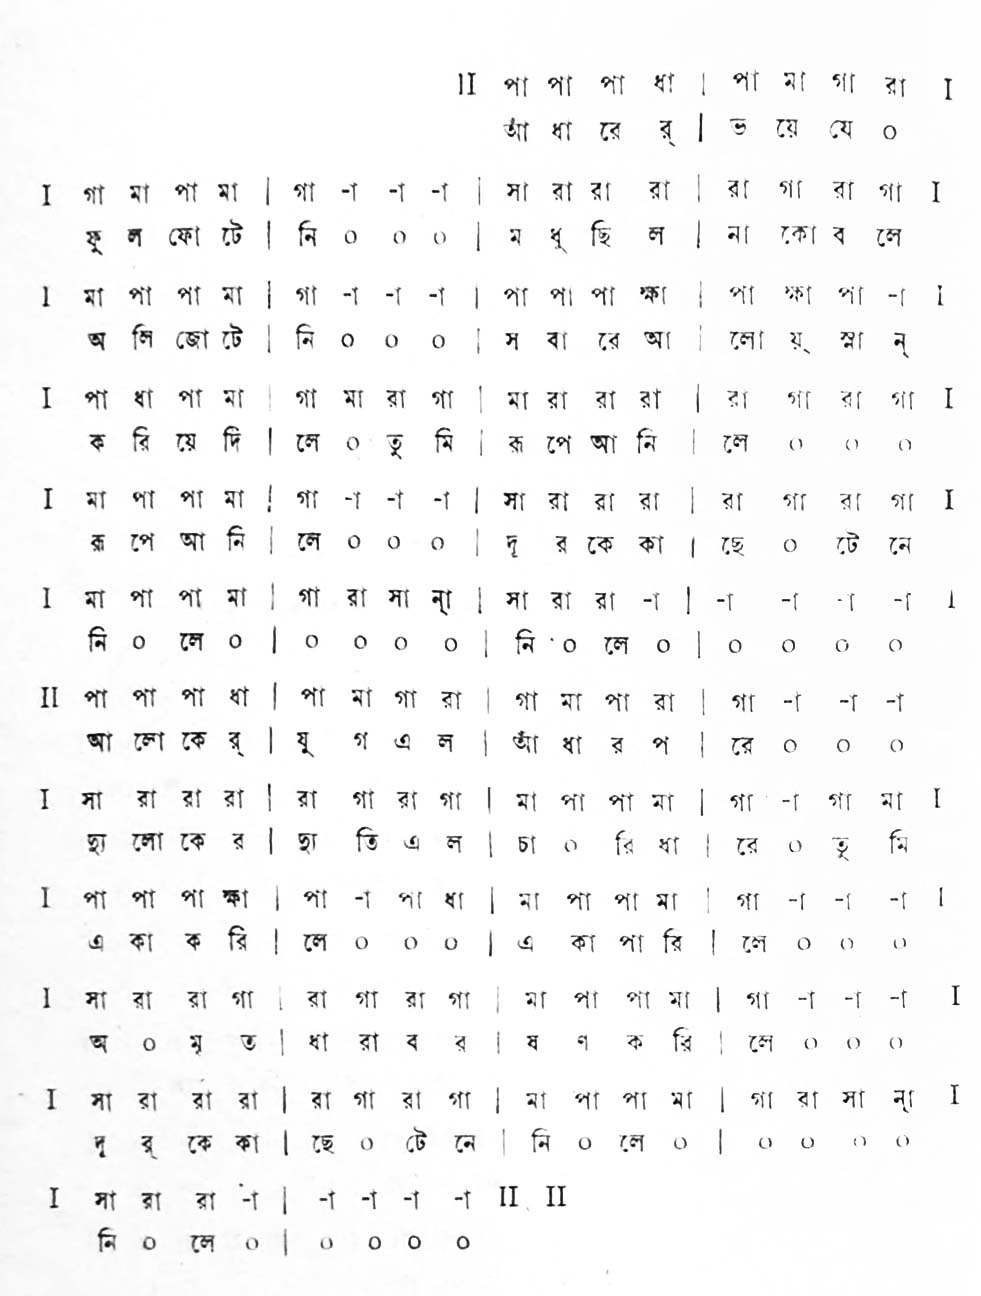 II পা পা পা ধা | পা মা গা রা I
আঁ ধা রে র্ | ভ য়ে যে ০
I গা মা পা মা | গা -া -া -া | সা রা রা রা | রা গা রা গা I
ফু ল ফো টে | নি ০ ০ ০ | ম ধু ছি ল | না কো ব লে
I মা পা পা মা | গা -া -া -া | পা পা পা ক্ষা | পা ক্ষা পা -া I
অ লি জো টে | নি ০ ০ ০ | স বা রে আ | লো য়্ স্না ন্
I পা ধা পা মা | গা মা রা গা | মা রা রা রা | রা গা রা গা I
ক রি য়ে দি | লে ০ তু মি | রূ পে আ নি | লে ০ ০ ০
I মা পা পা মা | গা -া -া -া | সা রা রা রা | রা গা রা গা I
রূ পে আ নি | লে ০ ০ ০ | দূ র কে কা | ছে ০ টে নে
I মা পা পা মা | গা রা সা ন্া | সা রা রা -া | -া -া -া -া I
নি ০ লে ০ | ০ ০ ০ ০ | নি ০ লে ০ | ০ ০ ০ ০
II পা পা পা ধা | পা মা গা রা | গা মা পা রা | গা -া -া -া
আ লো কে র্ | যু গ এ ল | আঁ ধা র প | রে ০ ০ ০
I সা রা রা রা | রা গা রা গা | মা পা পা মা | গা -া গা মা I
ছা লো কে র | ছা তি এ ল | চা ০ রি ধা | রে ০ তু মি
I পা পা পা ক্ষা | পা -া পা ধা | মা পা পা মা | গা -া -া -া I
এ কা ক রি | লে ০ ০ ০ | এ কা পা রি | লে ০ ০ ০
I সা রা রা গা | রা গা রা গা | মা পা পা মা | গা -া -া -া I
অ ০ মৃ ত | ধা রা ব র | ষ ণ ক রি | লে ০ ০ ০
I সা রা রা রা | রা গা রা গা | মা পা পা মা | গা রা সা ন্া I
দূ র্ কে কা | ছে ০ টে নে | নি ০ লে ০ | ০ ০ ০ ০
I সা রা রা -া | -া -া -া -া II II
নি ০ লে ০ | ০ ০ ০ ০